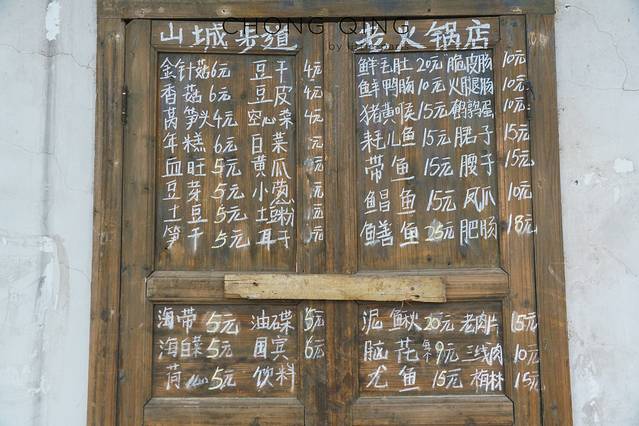 CHONG QING
by
山城步道 老火锅店
金针菇6元 豆干 4元
香菇 6元 豆皮 4元
莴笋头4元 空心菜 4元
年糕 6元 白菜 元
血旺 5元 黄瓜 元
豆芽 5元 小葱 元
土豆 5元 土豆粉 元
笋干 5元 耳子 元
鲜毛肚20元 脆皮肠 10元
鲜鸭肠10元 火腿肠 10元
猪黄喉15元 鹌鹑蛋 10元
耗儿鱼 15元 䐃子 15元
带鱼 15元 腰子 15元
鲳鱼 15元 凤爪 10元
鳝鱼 25元 肥肠 18元
海带 5元 油碟 5元
海白菜 5元 国宾 6元
荷心5元 饮料
泥鳅20元 老肉片 15元
脑花 9元 三线肉 10元
尤鱼 15元 梅林 15元